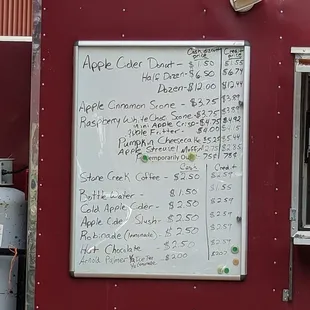 Cash Price Credit Price
Apple Cider Donut - $1.50 $1.55
Half Dozen - $6.50 $6.74
Dozen - $12.00 $12.44
Apple Cinnamon Scone - $3.75 $3.89
Raspberry White Choc Scone - $3.75 $3.89
Mini Apple Crisp - $4.75 $4.92
Apple Fritter - $4.00 $4.15
Pumpkin Cheesecake $5.25 $5.44
Apple Streusel Muffin
Temporarily Out
Cost Credit
Stone Creek Coffee - $2.50 $2.59
Bottle Water - $1.50 $1.55
Cold Apple Cider - $2.50 $2.59
Apple Cider Slush - $2.50 $2.59
Robinade (lemonade) - $2.50 $2.59
Hot Chocolate - $2.50 $2.59
Arnold Palmer ½ Ice Tea ½ Lemonade - $2.00 $2.07